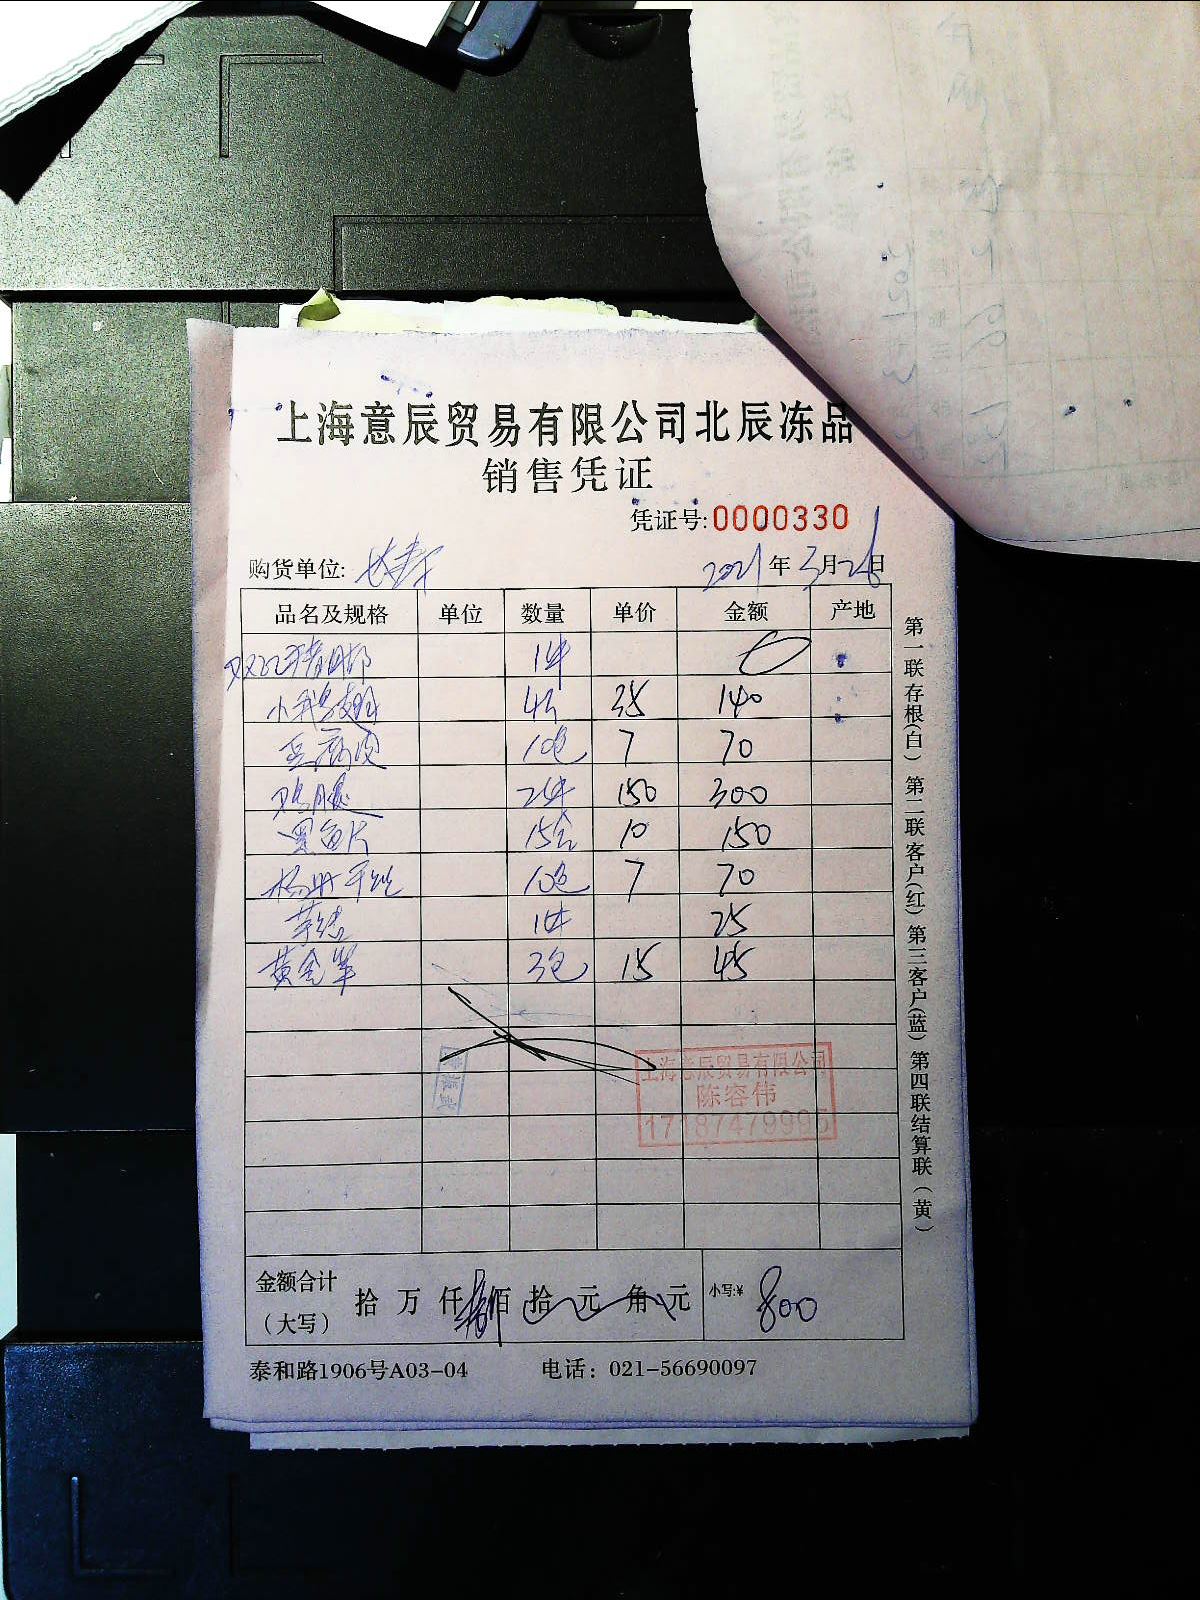 上海意辰贸易有限公司北辰冻品
销售凭证
凭证号:0000330
购货单位: 长寿 2021年3月26日
品名及规格 单位 数量 单价 金额 产地
1件
4斤 35 140
豆腐皮 10包 7 70
鸡腿 2件 150 300
黑鱼片 15合 10 150
扬州干丝 10包 7 70
1件 25
黄金 3包 15 45
上海意辰贸易有限公司
陈容伟
17187479995
金额合计
(大写) 拾 万 仟 捌 佰 拾 元 角 元 小写:¥ 800
泰和路1906号A03-04 电话: 021-56690097
第一联存根(白) 第二联客户(红) 第三客户(蓝) 第四联结算联(黄)